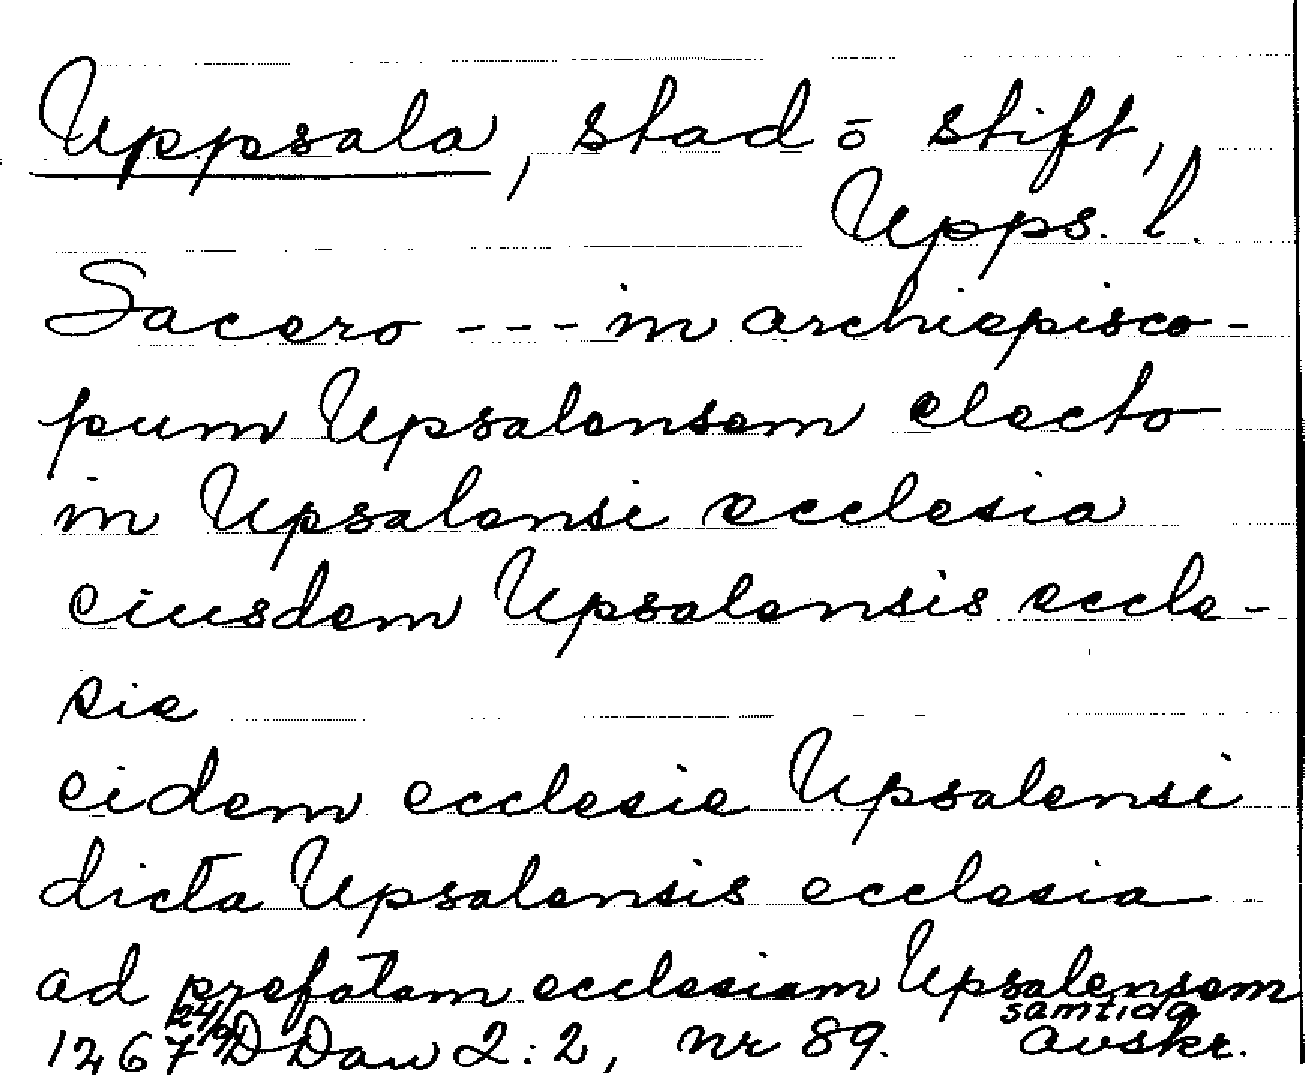 Uppsala, stad o stift,
Upps. l.
Sacero --- in archiepisco-
pum Upsalensem electo
in Upsalensi ecclesia
eiusdem Upsalensis eccle-
sie
eidem ecclesie Upsalensi
dicta Upsalensis ecclesia
ad prefatam ecclesiam Upsalensem
1267 24/9 D Dan 2:2, nr 89. samtida avskr.